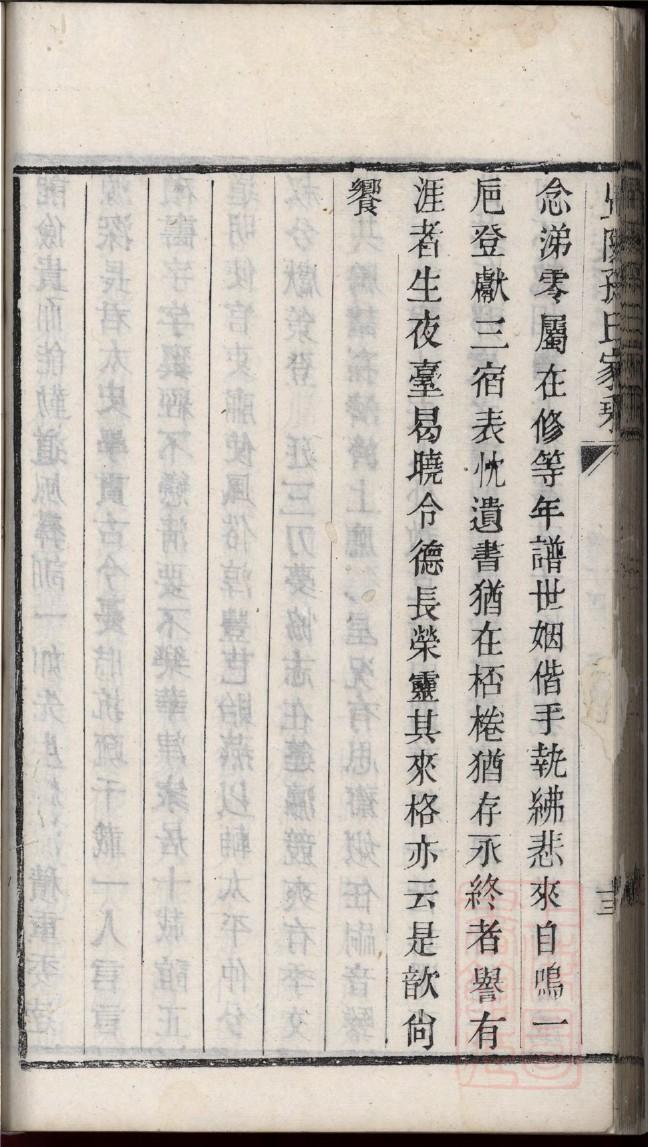 孫氏家乘
十三
念涕零屬在修等年譜世姻偕手執紼悲來自鳴一
巵登獻三宿表忱遺書猶在桮棬猶存永終者譽有
涯者生夜臺曷曉令德長榮靈其來格亦云是歆尙
饗